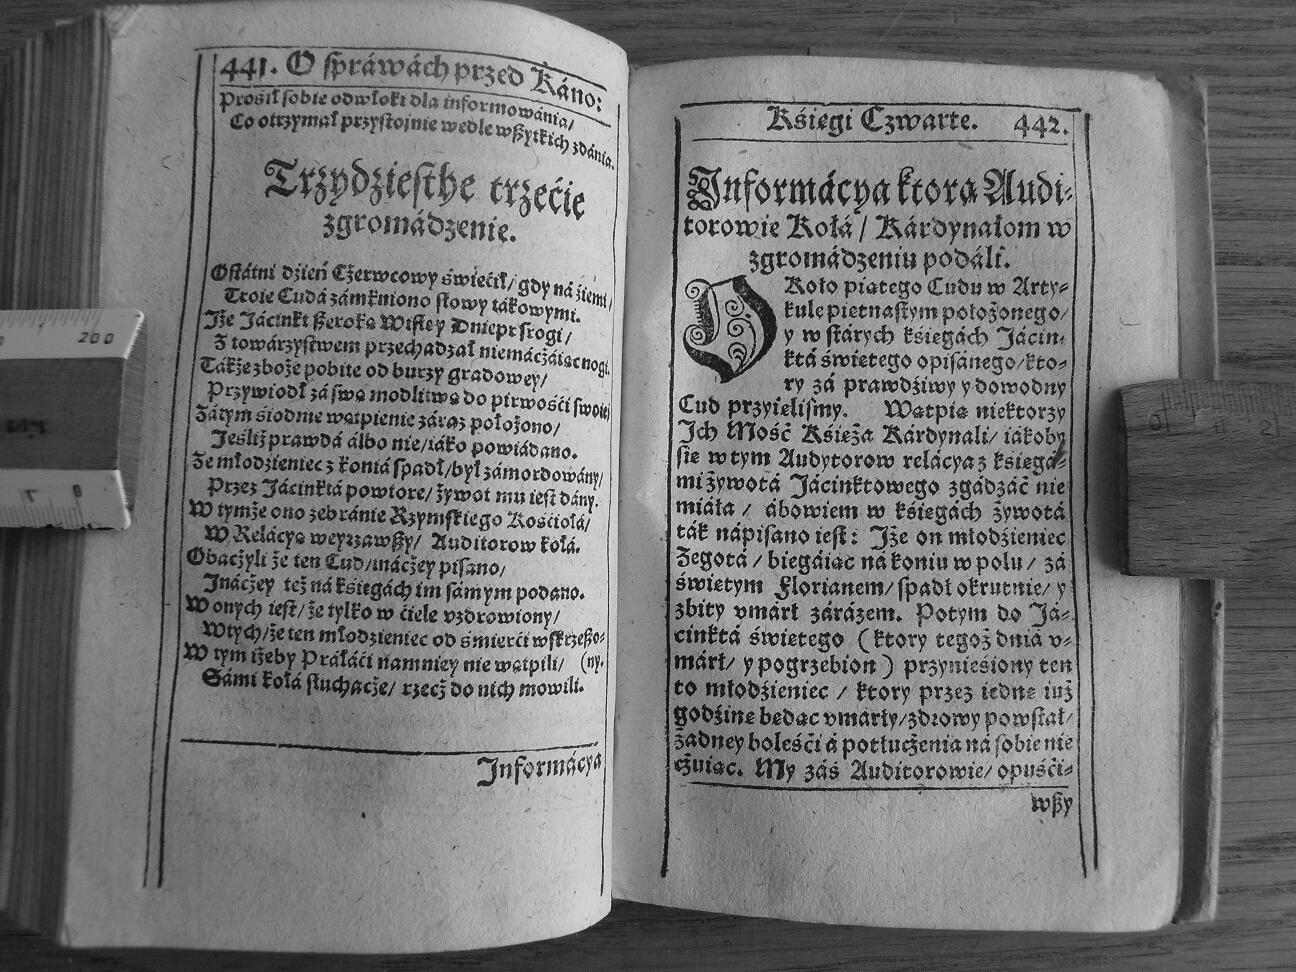 441. O spráwách przed Káno:
Prosił sobie odwłoki dla informowánia/
Co otrzymał przystoinie wedle wßytkich zdánia.
Trzydziesthe trzećie
zgromádzenie.
Ostátni dzień Cżerwcowy świećił/ gdy ná źiemi/
Troie Cudá zámkniono słowy tákowymi.
Iże Jácinkt ßeroką Wisłę y Dniepr srogi/
Z towárzystwem przechadzał niemáczáiąc nogi.
Tákże zboże pobite od burzy gradowey/
Przywiodł zá swą modlitwą do pirwośći swoiey
Zátym śiodme wątpienie záraz położono/
Jeśliż prawdá álbo nie/ iáko powiádano.
Że młodźieniec z koniá spadł/ był zámordowány/
Przez Jácinktá powtore/ żywot mu iest dány.
W tymże ono zebránie Rzymskiego Kośćiołá/
W Relácyą weyzrzawßy/ Auditorow kołá.
Obacżyli że ten Cud/ inácżey pisano/
Jnácżey też ná księgách im sámym podano.
W onych iest/ że tylko w ćiele vzdrowiony/
W tych/ że ten młodźieniec od śmierći wskrzeßo-
W tym iżeby Práłaći namniey nie wątpili/ (ny.
Sámi kołá słuchacże/ rzecż do nich mowili.
Informácya
Kśięgi Czwarte. 442.
Jnformácya ktorą Audi-
torowie Kołá/ Kárdynałom w
zgromádzeniu podáli.
Około piątego Cudu w Arty-
kule pietnastym położonego/
y w stárych księgách Jácin-
ktá świętego opisánego/ kto-
ry zá prawdźiwy y dowodny
Cud przyięlismy. Wątpią niektorzy
Jch Mość Xsięża Kárdynali/ iákoby
się w tym Audytorow relácya z księgá-
mi żywotá Jácinktowego zgádzáć nie
miáłá / ábowiem w księgách żywotá
ták nápisano iest: Jże on młodźieniec
Żegotá / biegáiąc ná koniu w polu / zá
świętym Florianem/ spadł okrutnie/ y
zbity vmárł zárázem. Potym do Já-
cinktá świętego ( ktory tegoż dniá v-
márł/ y pogrzebion ) przynieśiony ten
to młodźieniec / ktory przez iednę iuż
godźinę będąc vmárły/ zdrowy powstał/
żadney boleśći á potłucżenia ná sobie nie
cżuiąc. My záś Auditorowie/ opuśći-
wßy
200
0
2